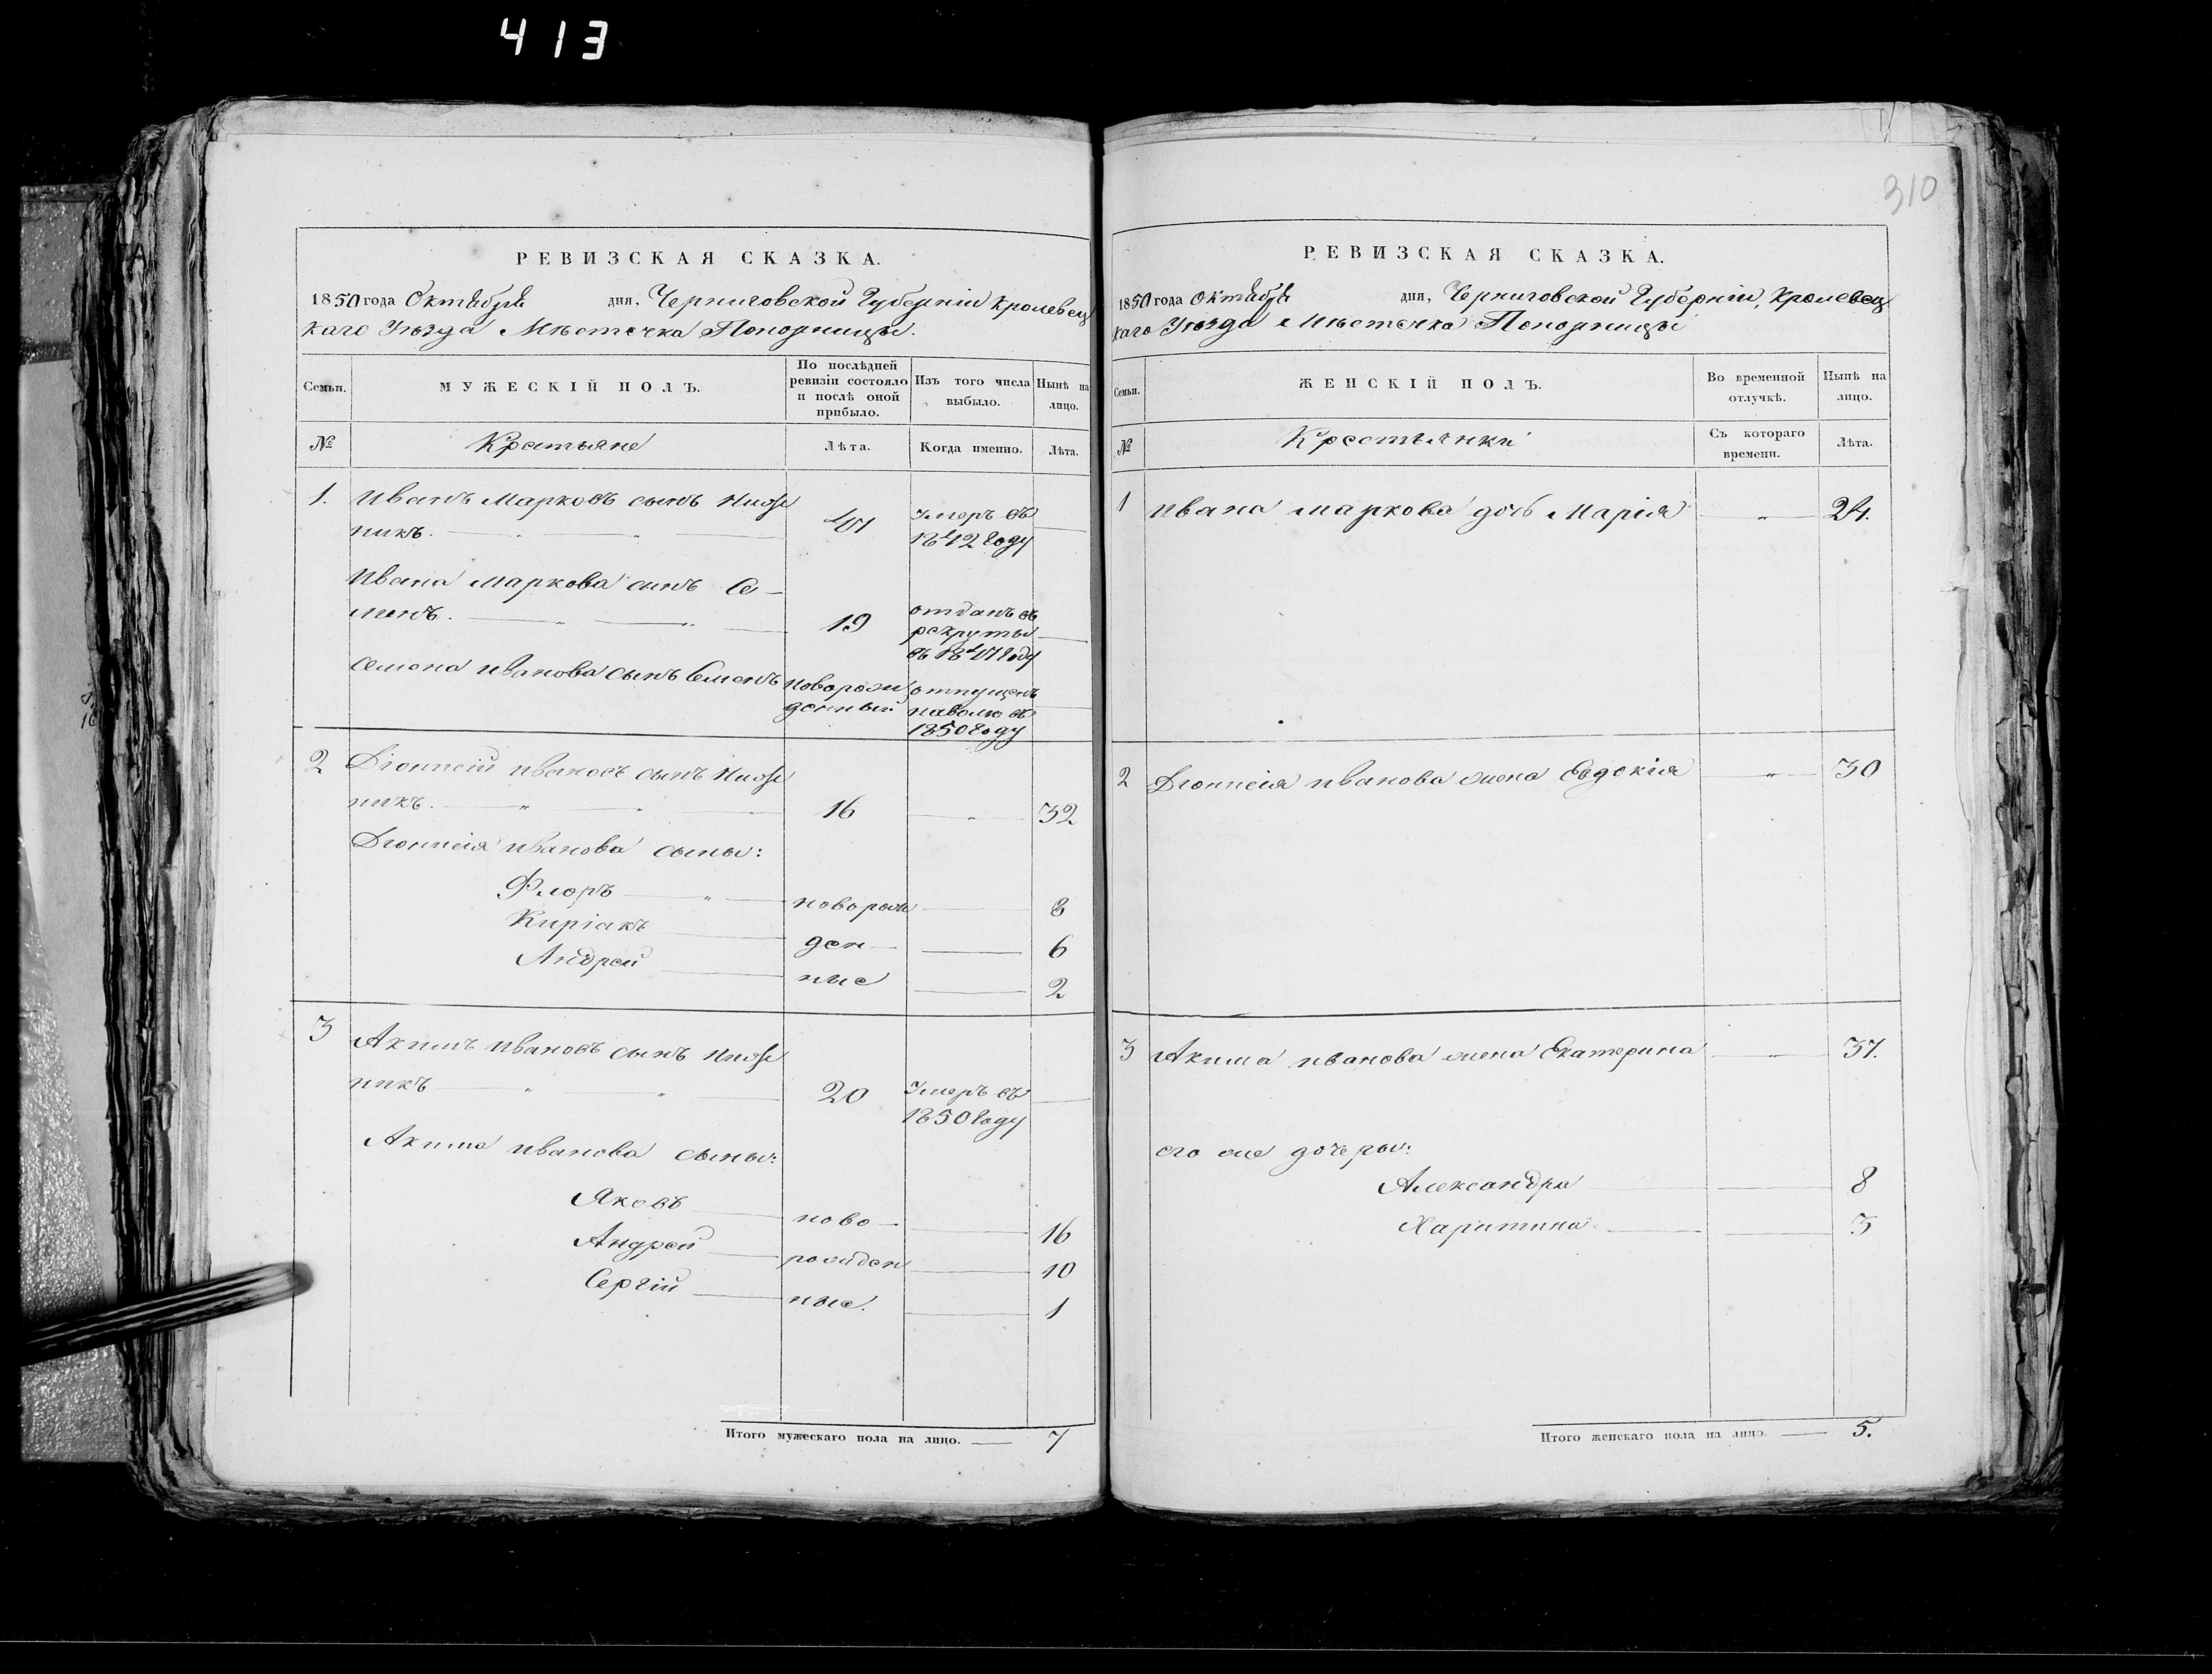 413
310
РЕВИЗСКАЯ СКАЗКА.
1850 года Октября дня, Черниговской Губерніи Кролевец
каго Уѣзда Мѣстечка Понорницы.
Семьи.
МУЖЕСКІЙ ПОЛЪ.
По послѣдней
ревизіи состояло
и послѣ оной
прибыло.
Изъ того числа
выбыло.
Нынѣ на
лицо.
№
Крестьяне
Лѣта.
Когда именно.
Лѣта.
1. Иванъ Марковъ сынъ
никъ.
Умеръ въ
1842 году
Ивана Маркова сынъ Се-
менъ.
19
отданъ въ
рекруты
въ году
Семена Иванова сынъ Семенъ
новорож
денный
отпущенъ
наволю въ
1850 году
2 Діонисій Ивановъ сынъ
никъ.
16
32
Діонисія Иванова сыны:
Флоръ новорож 8
Киріакъ ден 6
Андрей ные 2
3 Акимъ Ивановъ сынъ
никъ
20
Умеръ въ
1850 году
Акима Иванова сыны:
Яковъ ново- 16
Андрей рожден 10
Сергій ные. 1
Итого мужескаго пола на лицо. 7
РЕВИЗСКАЯ СКАЗКА.
1850 года Октября дня, Черниговской Губерніи, Кролевец
каго Уѣзда Мѣстечка Понорницы
Семьи.
ЖЕНСКІЙ ПОЛЪ.
Во временной
отлучкѣ.
Нынѣ на
лицо.
№
Крестьянки
Съ котораго
времени.
Лѣта.
1 Ивана Маркова дочь Марія 24.
2 Діонисія Иванова жена Евдокія 30
3 Акима Иванова жена Екатерина 37.
его же дочеры:
Александра 8
Харитина 3
Итого женскаго пола на лицо. 5.